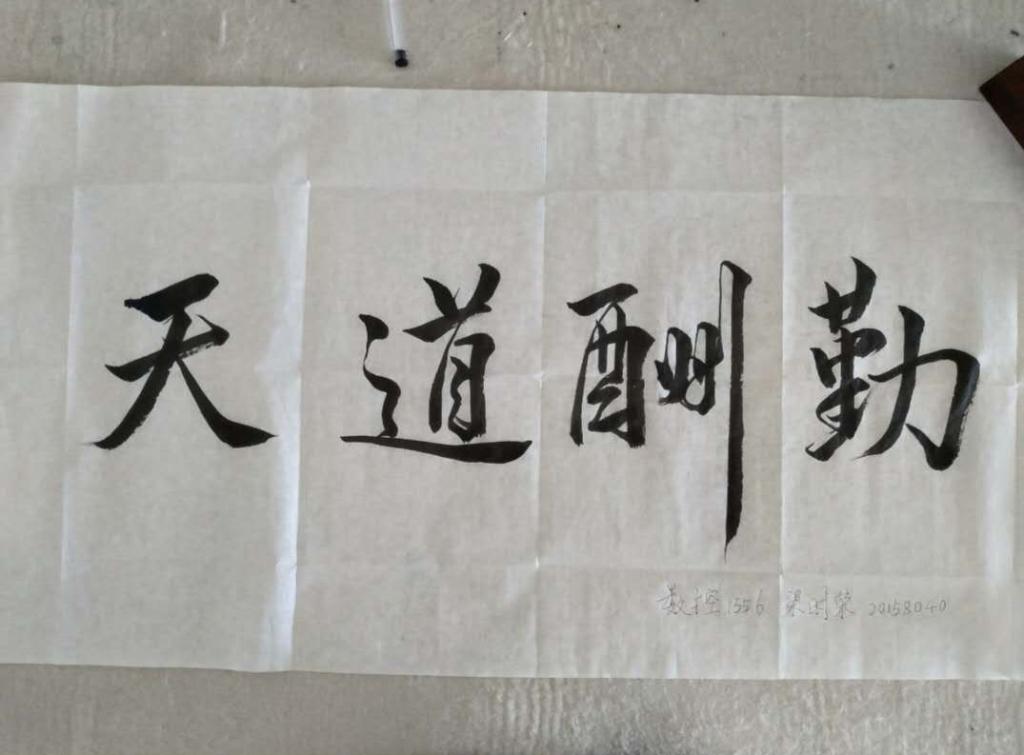 天道酬勤
数控1556 梁时荣 20158040